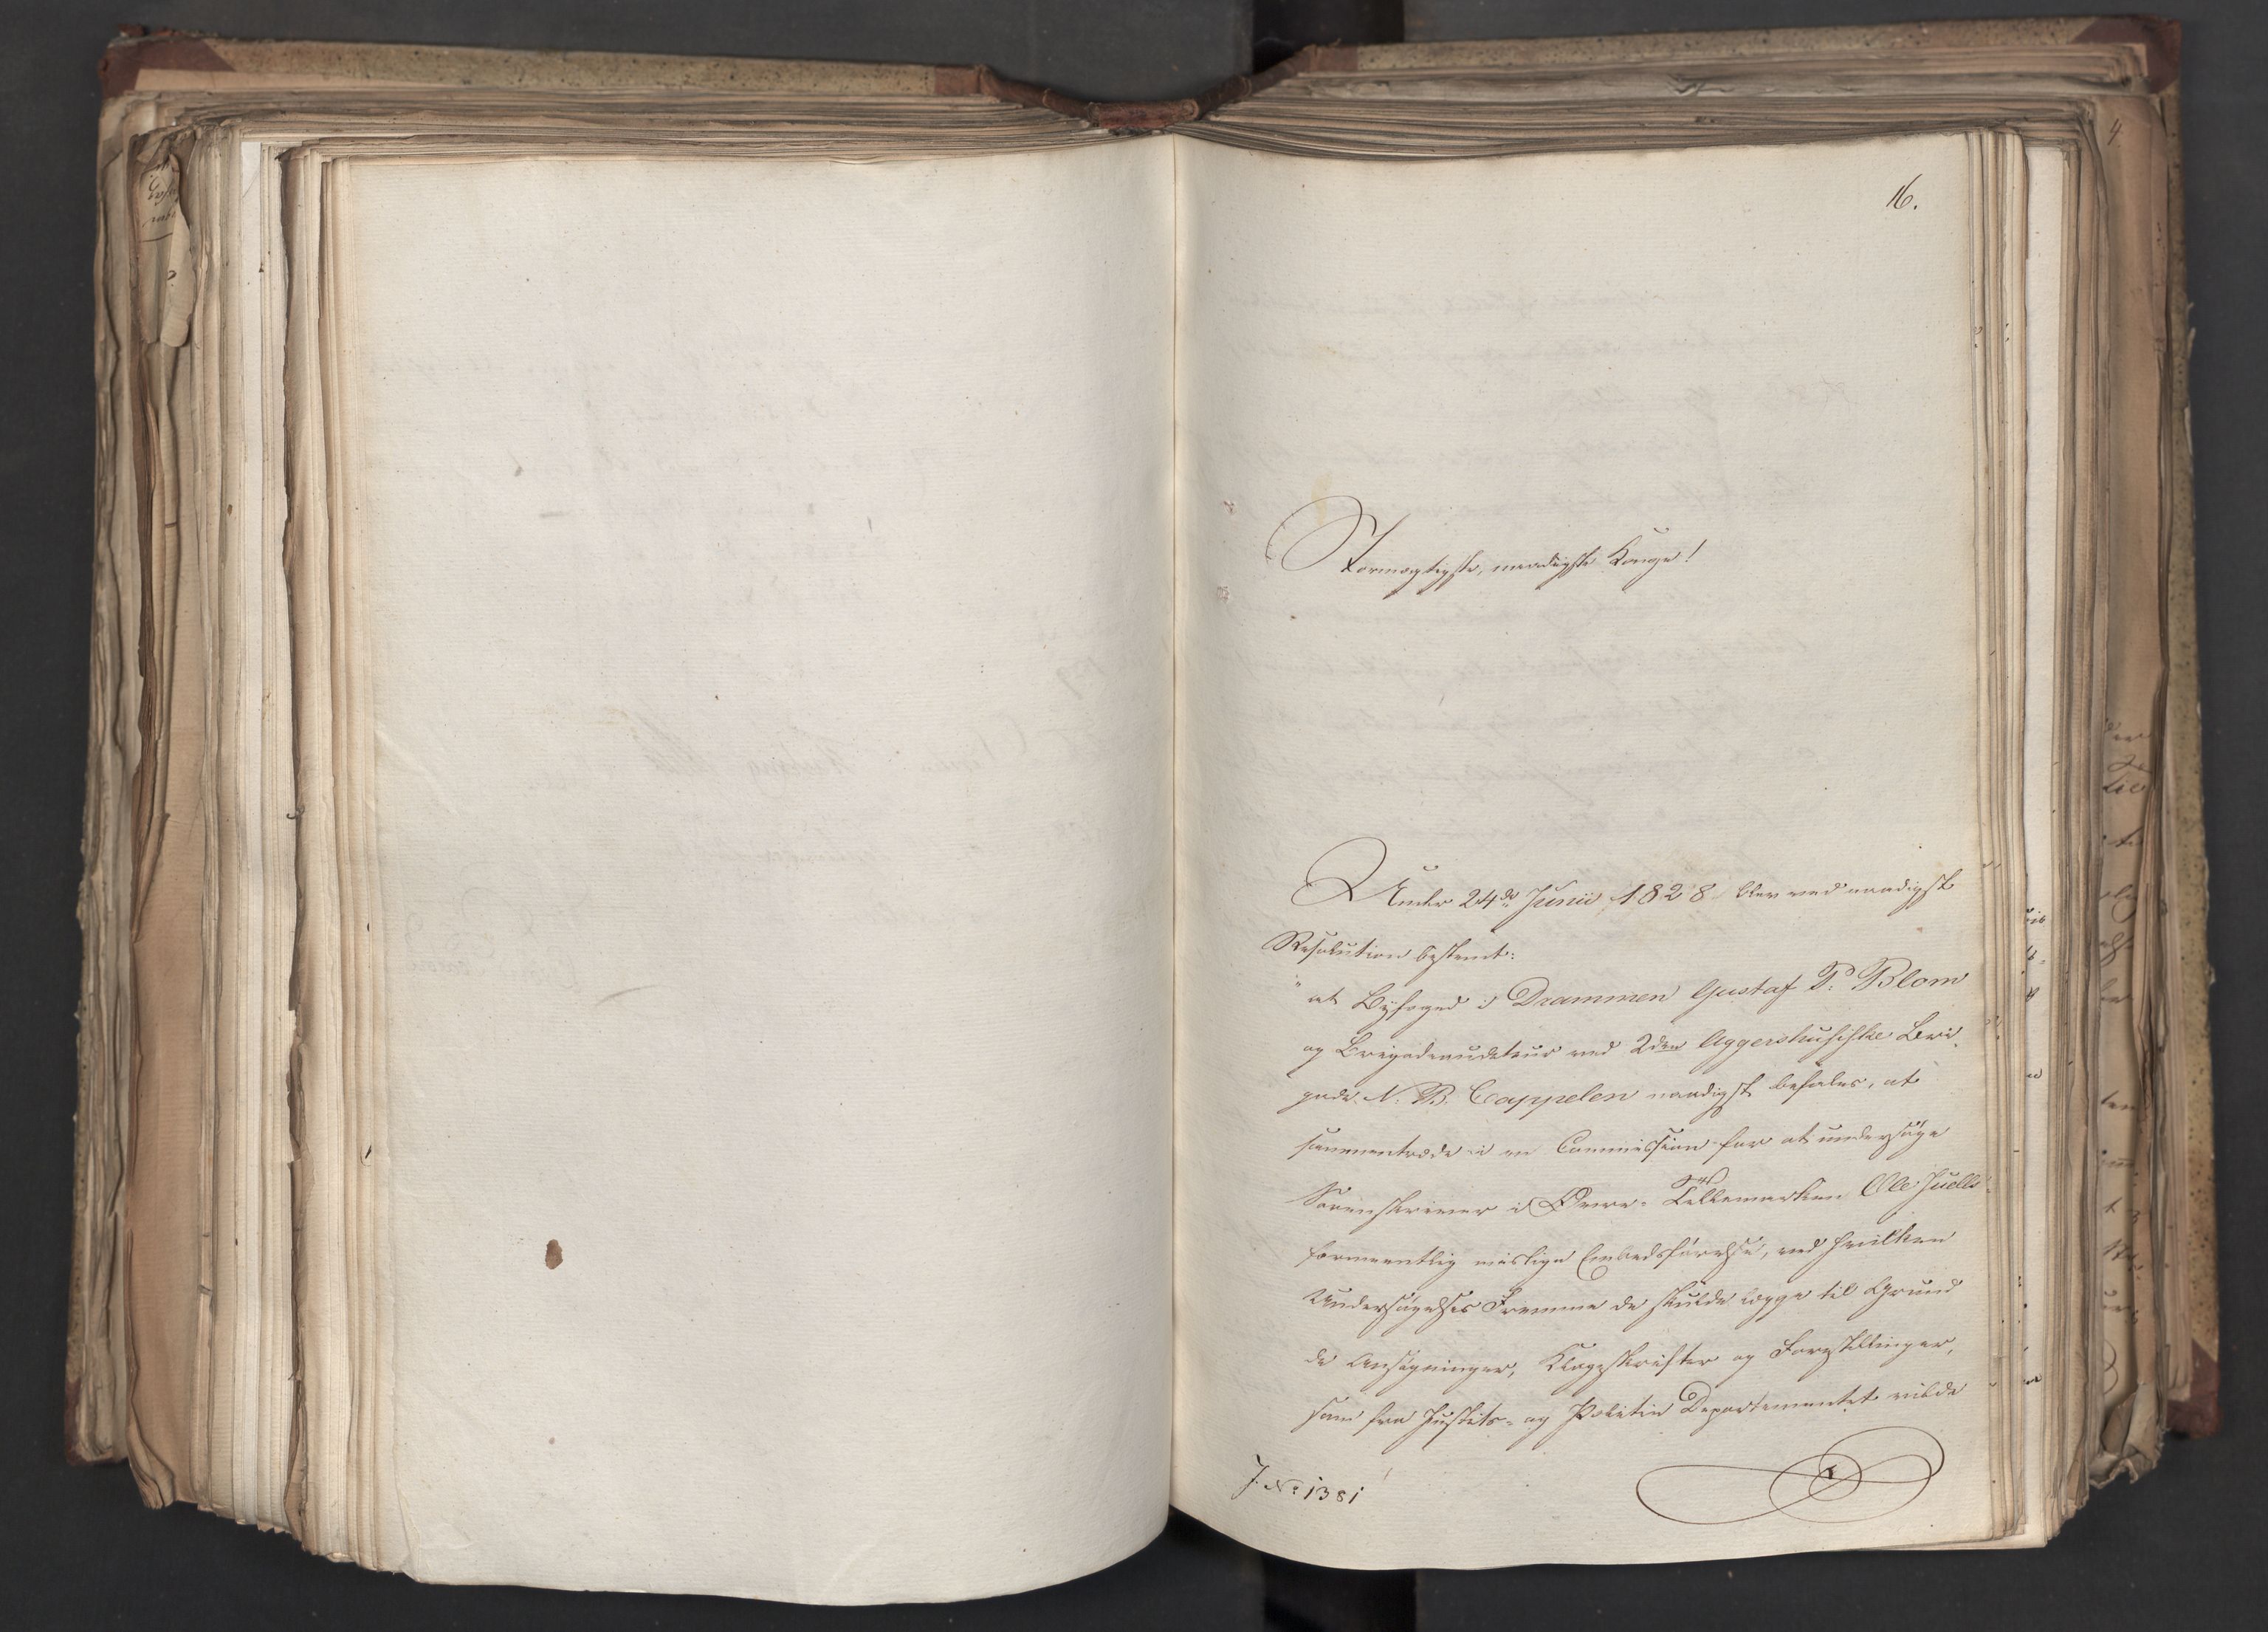 16.
Stormægtigste, naadigste Konge!
Under 24de Junii 1828 blev ved naadigst
Resolution bestemt:
"at Byfoged i Drammen Gustaf P. Blom
og Brigadeauditeur ved 2den Aggershusiske Bri-
gade N. B. Cappelen naadigst befales, at
sammentræde i en Commission for at undersøge
Sorenskriver i Øvre-Tellemarken Ole Juells
formeentlig mislige Embedsførelse, ved hvilken
Undersøgelses Fremme de skulde lægge til Grund
de Ansøgninger, Klageskrifter og Forestillinger,
som fra Justits- og Politie Departementet vilde
J. No 1381